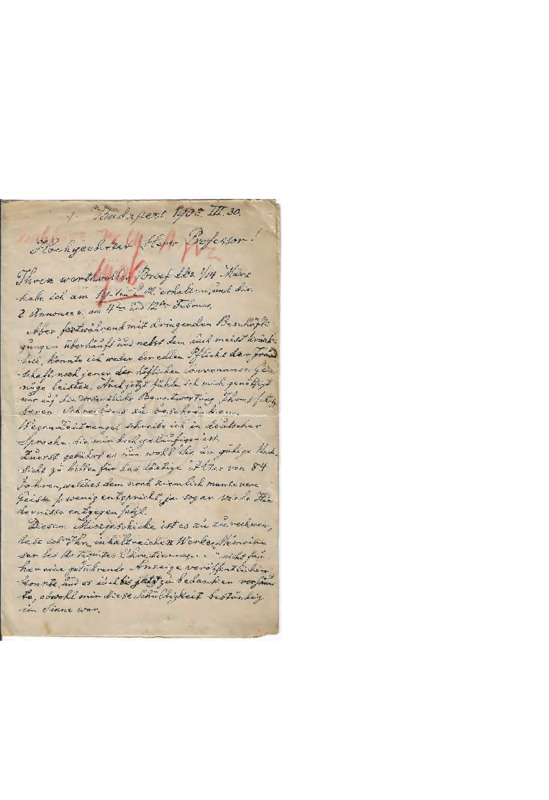 Budapest 190 . III. 30.
Hochgeehrter Herr Professor!
Ihren werthvollen Brief dto 1/14 März
habe ich am 19-ten d. M. erhalten, und die
2 Annonce n. am 4ten und 12ten Februar.
Aber fortwährend mit dringenden Beschäfti-
gungen überhäuft und nebst dem auch meist kränk-
lich, konnte ich weder der edlen Pflicht der Freund
schaft, noch jener der höflichen convenance Ge-
nüge leisten. Auch jetzt fühle ich mich genöthigt
nur auf die Beantwortung Ihres
Schreibens zu beschränken.
Wegen Zeitmangel schreibe ich in deutscher
Sprache die mir doch geläufiger ist.
Zuerst gebührt es um wohl gütige Nach-
sicht zu bitten für das lästige Alter von 84
Jahren, welches dem noch ziemlich munteren
Geiste so wenig entspricht ja sogar
entgegen setzt.
Diesem ist es zu zurechnen,
dass ich Ihr inhaltreiches Werk „Mémoire
sur les " nicht frü
her eine gebührende Anzeige veröffentlichen
konnte, und es auch bis jetzt zu bedanken versäum
te, obwohl mir diese Schuldigkeit beständig
im Sinne war.